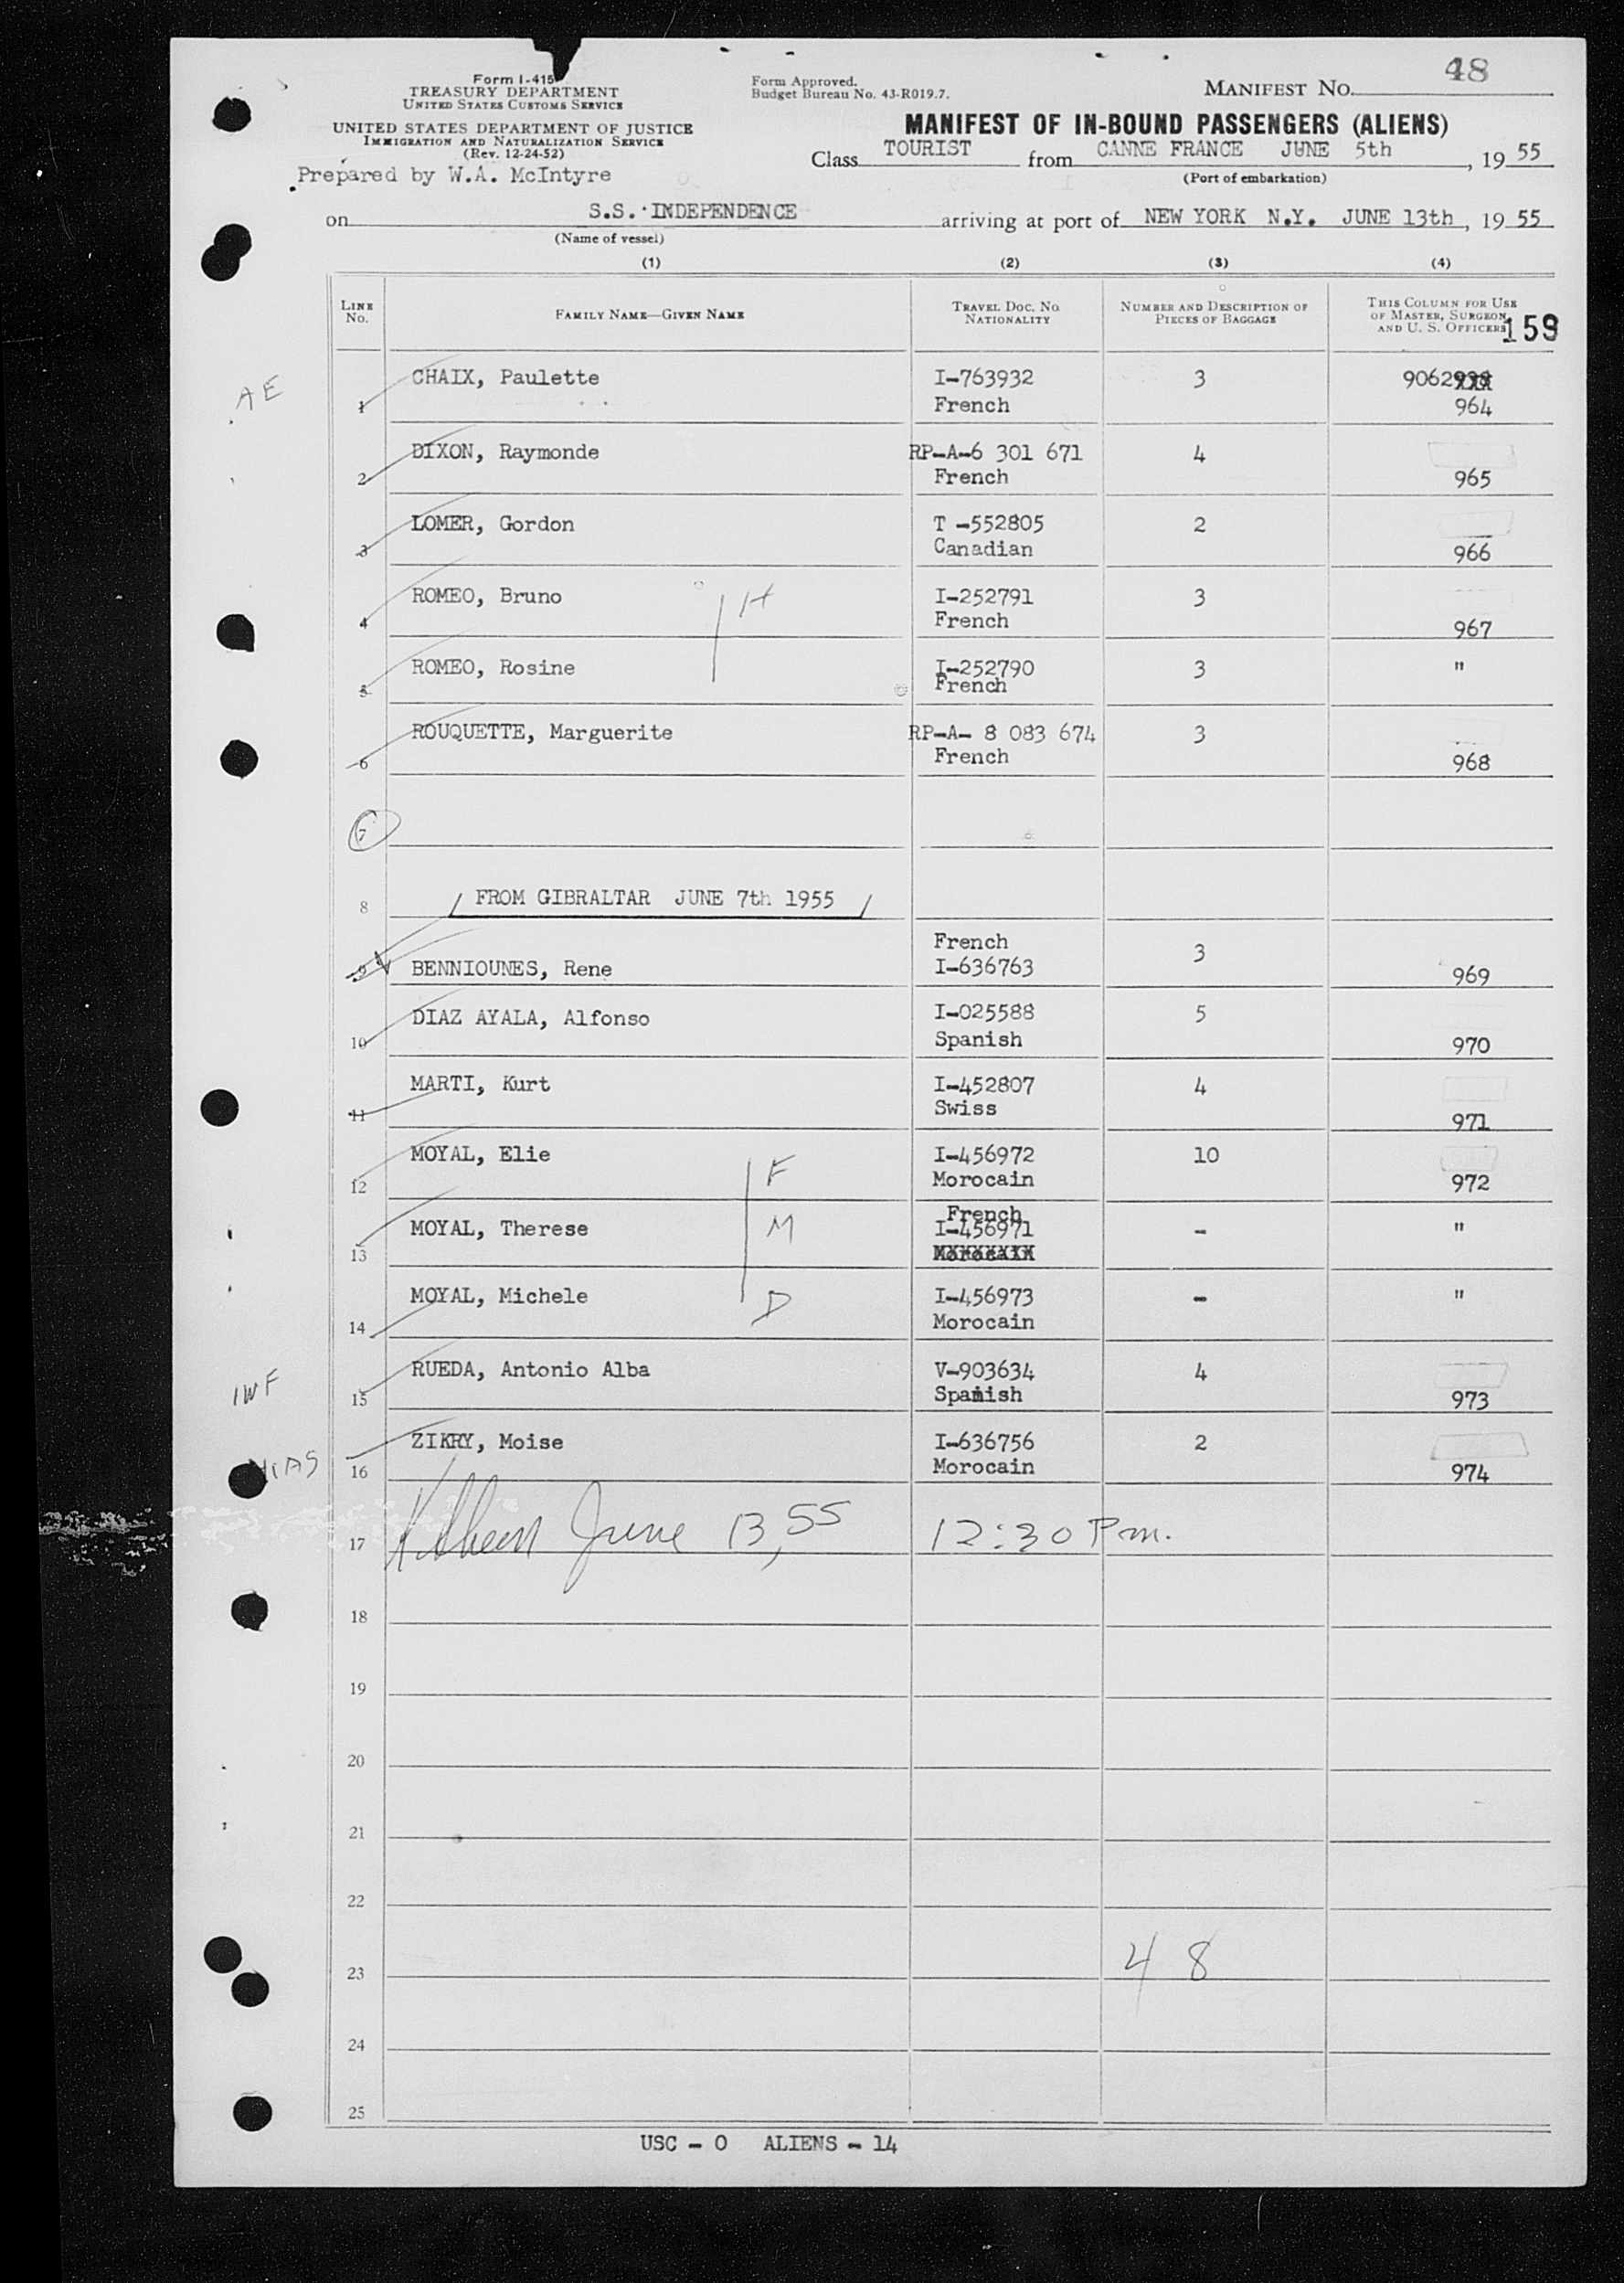 Form I-415
TREASURY DEPARTMENT
UNITED STATES CUSTOMS SERVICE
UNITED STATES DEPARTMENT OF JUSTICE
IMMIGRATION AND NATURALIZATION SERVICE
(Rev. 12-24-52)
Prepared by W.A. McIntyre
Form Approved.
Budget Bureau No. 43-R019.7.
MANIFEST NO. 48
MANIFEST OF IN-BOUND PASSENGERS (ALIENS)
Class TOURIST from CANNE FRANCE JUNE 5th, 19 55
(Port of embarkation)
on S.S. INDEPENDENCE arriving at port of NEW YORK N.Y. JUNE 13th, 19 55
(Name of vessel)
(1) (2) (3) (4)
LINE No. FAMILY NAME—GIVEN NAME TRAVEL DOC. NO. NATIONALITY NUMBER AND DESCRIPTION OF PIECES OF BAGGAGE THIS COLUMN FOR USE OF MASTER, SURGEON, AND U. S. OFFICERS
159
AE 1 CHAIX, Paulette I-763932 French 3 9062 964
2 DIXON, Raymonde RP-A-6 301 671 French 4 965
3 LOMER, Gordon T -552805 Canadian 2 966
4 ROMEO, Bruno H I-252791 French 3 967
5 ROMEO, Rosine I-252790 French 3 "
6 ROUQUETTE, Marguerite RP-A- 8 083 674 French 3 968
7
8 / FROM GIBRALTAR JUNE 7th 1955 /
9 BENNIOUNES, Rene French I-636763 3 969
10 DIAZ AYALA, Alfonso I-025588 Spanish 5 970
11 MARTI, Kurt I-452807 Swiss 4 971
12 MOYAL, Elie F I-456972 Morocain 10 972
13 MOYAL, Therese M French I-456971 Morocain - "
14 MOYAL, Michele D I-456973 Morocain - "
IWF 15 RUEDA, Antonio Alba V-903634 Spanish 4 973
HIAS 16 ZIKRY, Moise I-636756 Morocain 2 974
17 June 13, 55 12:30 Pm.
18
19
20
21
22
23 48
24
25
USC - 0 ALIENS - 14